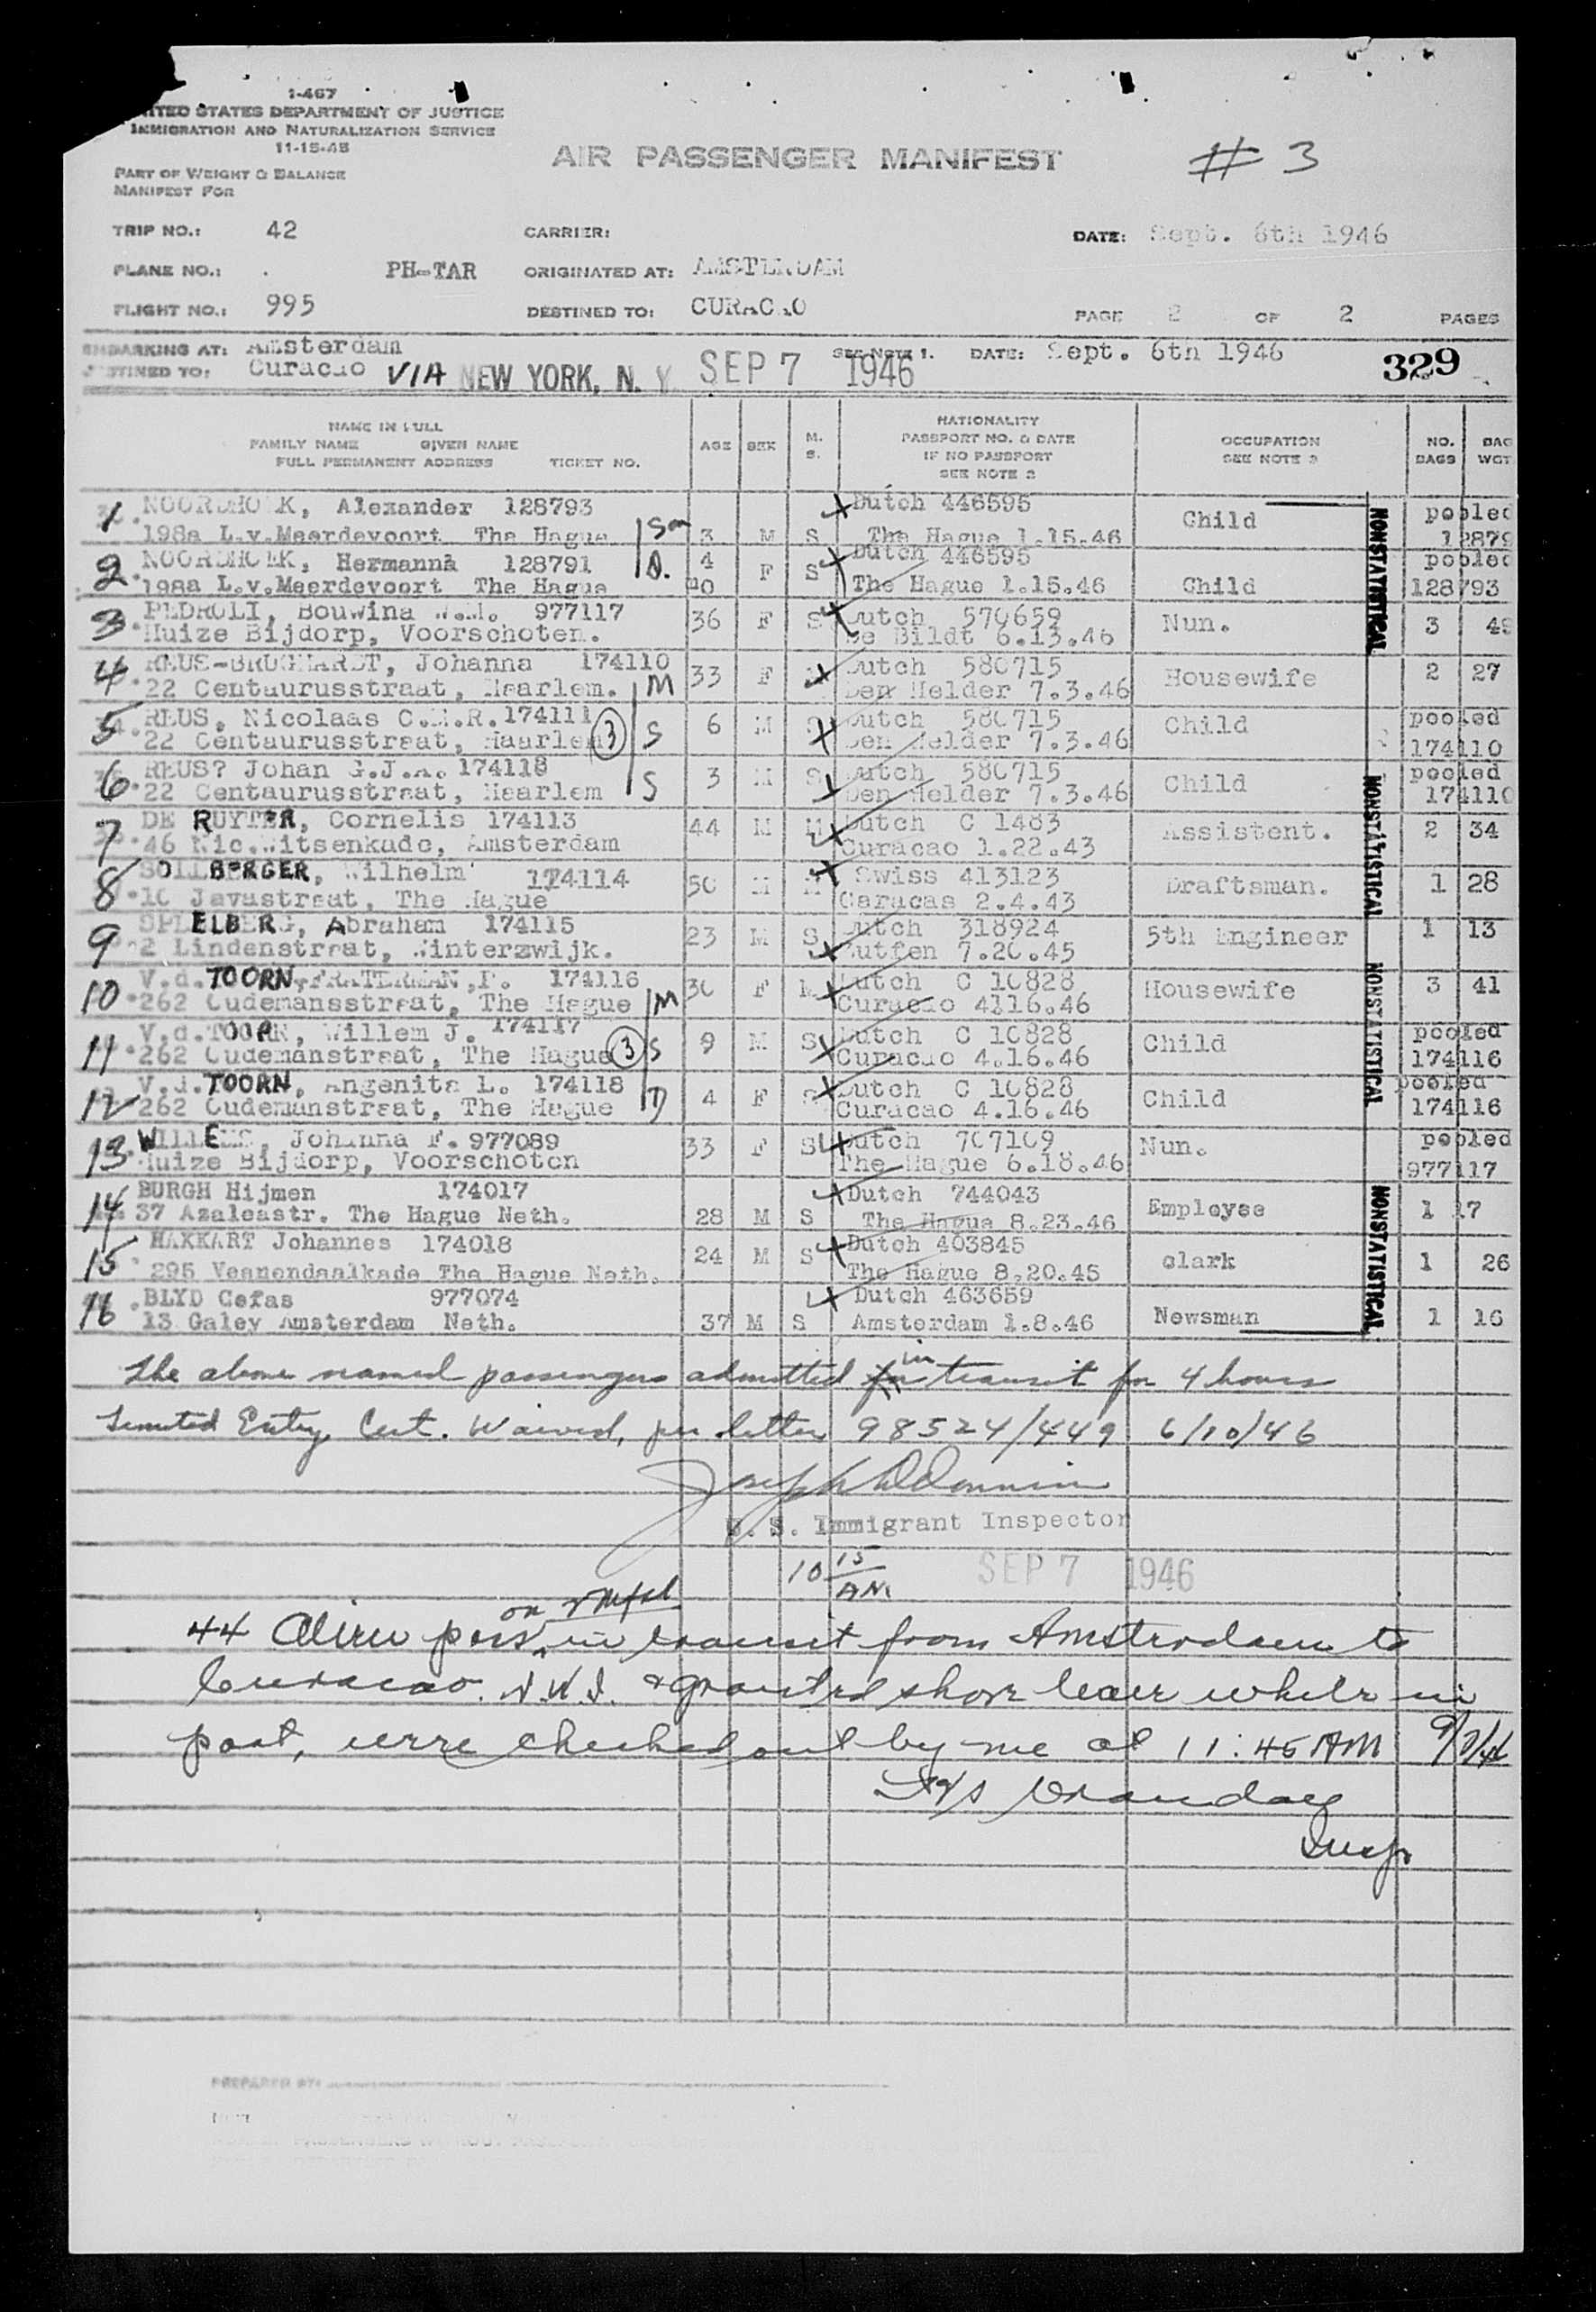 1-467
UNITED STATES DEPARTMENT OF JUSTICE
IMMIGRATION AND NATURALIZATION SERVICE
11-15-45
AIR PASSENGER MANIFEST
# 3
PART OF WEIGHT & BALANCE
MANIFEST FOR
TRIP NO.: 42 CARRIER: DATE: Sept. 6th 1946
PLANE NO.: PH-TAR ORIGINATED AT: AMSTERDAM
FLIGHT NO.: 995 DESTINED TO: CURACAO PAGE 2 OF 2 PAGES
EMBARKING AT: Amsterdam SEE NOTE 1. DATE: Sept. 6th 1946
DESTINED TO: Curacao VIA NEW YORK, N. Y. SEP 7 1946 329
NAME IN FULL
FAMILY NAME GIVEN NAME
FULL PERMANENT ADDRESS TICKET NO.
AGE SEX M. S.
NATIONALITY
PASSPORT NO. & DATE
IF NO PASSPORT
SEE NOTE 2
OCCUPATION
SEE NOTE 3
NO. BAGS
BAG WGT
1 NOORDHOEK, Alexander 128793 Dutch 446595 pooled
198a L.v.Meerdevoort The Hague Son 3 M S The Hague 1.15.46 Child 12879
2 NOORDHOEK, Hermanna 128791 4 F S Dutch 446595 pooled
198a L.v.Meerdevoort The Hague D. The Hague 1.15.46 Child 128793
3 PEDROLI, Bouwina W.M. 977117 36 F S Dutch 570659 Nun. 3 49
Huize Bijdorp, Voorschoten. De Bildt 6.13.46
4 REUS-BRUGHARDT, Johanna 174110 33 F M Dutch 580715 Housewife 2 27
22 Centaurusstraat, Haarlem. M Den Helder 7.3.46
5 REUS, Nicolaas C.M.R. 174111 6 M S Dutch 580715 Child pooled
22 Centaurusstraat, Haarlem 3 S Den Helder 7.3.46 174110
6 REUS? Johan G.J.A. 174118 3 M S Dutch 580715 Child pooled
22 Centaurusstraat, Haarlem S Den Helder 7.3.46 174110
7 DE RUYTER, Cornelis 174113 44 M M Dutch C 1483 Assistent. 2 34
46 Nic.Witsenkade, Amsterdam Curacao 1.22.43
8 SOLLBERGER, Wilhelm 174114 50 M M Swiss 413123 Draftsman. 1 28
10 Javastraat, The Hague Caracas 2.4.43
9 ELBERG, Abraham 174115 23 M S Dutch 318924 5th Engineer 1 13
2 Lindenstraat, Winterzwijk. Zutfen 7.20.45
10 V.d. TOORN-FRATERMAN, P. 174116 30 F M Dutch C 10828 Housewife 3 41
262 Oudemansstraat, The Hague M Curacao 4116.46
11 V.d. TOORN, Willem J. 174117 9 M S Dutch C 10828 Child pooled
262 Oudemanstraat, The Hague 3 S Curacao 4.16.46 174116
12 V.d. TOORN, Angenita L. 174118 4 F S Dutch C 10828 Child pooled
262 Oudemanstraat, The Hague D Curacao 4.16.46 174116
13 WILLEMS, Johanna F. 977089 33 F S Dutch 707109 Nun. pooled
Huize Bijdorp, Voorschoten The Hague 6.18.46 977117
14 BURGH Hijmen 174017 Dutch 744043 Employee 1 17
37 Azaleastr. The Hague Neth. 28 M S The Hague 8.23.46
15 HAKKART Johannes 174018 24 M S Dutch 403845 clark 1 26
295 Veenendaalkade The Hague Neth. The Hague 8.20.45
16 BLYD Cefas 977074 Dutch 463659 Newsman 1 16
13 Galey Amsterdam Neth. 37 M S Amsterdam 1.8.46
NONSTATISTICAL
NONSTATISTICAL
NONSTATISTICAL
NONSTATISTICAL
The above named passengers admitted in transit for 4 hours
Limited Entry Cert. Waived, per letter 98524/449 6/10/46
U. S. Immigrant Inspector
10 15 AM. SEP 7 1946
44 Alien pass. on in transit from Amsterdam to
Curacao. N.W.I. & granted shore leave while in
port, were checked out by me at 11:45 AM 9/7/46
Insp.
PREPARED BY: